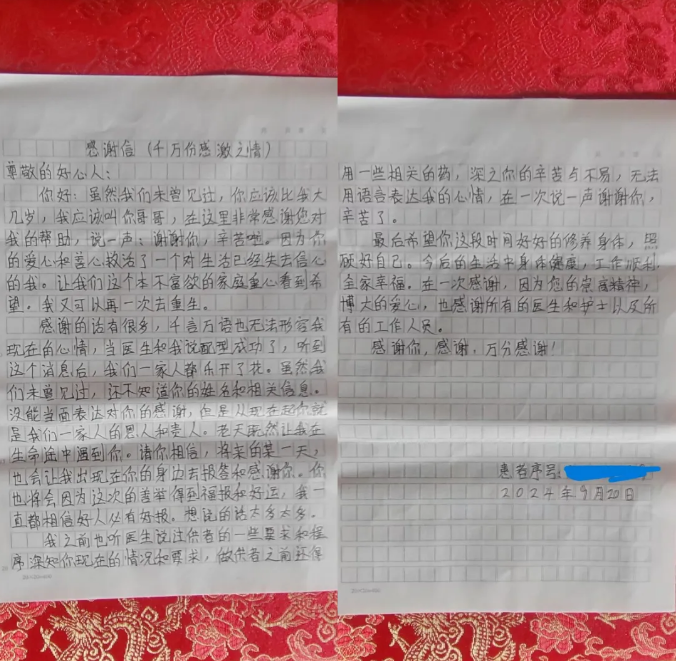 感谢信（千万份感激之情）
尊敬的好心人：
你好：虽然我们未曾见过，你应该比我大
几岁，我应该叫你哥哥，在这里非常感谢您对
我的帮助，说一声：谢谢你，辛苦啦。因为你
的爱心和善心救活了一个对生活已经失去信心
的我。让我们这个本不富欲的家庭重心看到希
望。我又可以再一次去重生。
感谢的话有很多，千言万语也无法形容我
现在的心情，当医生和我说配型成功了，听到
这个消息后，我们一家人都乐开了花。虽然我
们未曾见过，还不知道你的姓名和相关信息。
没能当面表达对你的感谢，但是从现在起你就
是我们一家人的恩人和贵人。老天既然让我在
生命途中遇到你。请你相信，将来的某一天，
也会让我出现在你的身边去报答和感谢你。你
也将会因为这次的善举得到福报和好运，我一
直都相信好人必有好报。想说的话太多太多。
我之前也听医生说过供者的一些要求和程
序深知你现在的情况和要求，做供者之前还得
用一些相关的药，深之你的辛苦与不易，无法
用语言表达我的心情，在一次说一声谢谢你，
辛苦了。
最后希望你这段时间好好的修养身体，照
顾好自己。今后的生活中身体健康，工作顺利
全家幸福。在一次感谢，因为您的崇高精神，
博大的爱心，也感谢所有的医生和护士以及所
有的工作人员。
感谢你，感谢，万分感谢！
患者序号：
2024年9月20日